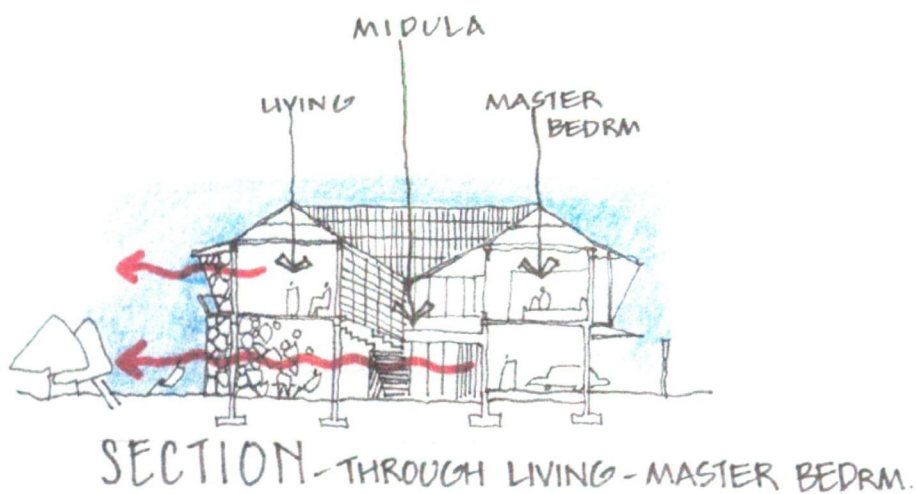 MIDULA
LIVING
MASTER
BEDRM
SECTION - THROUGH LIVING - MASTER BEDRM.